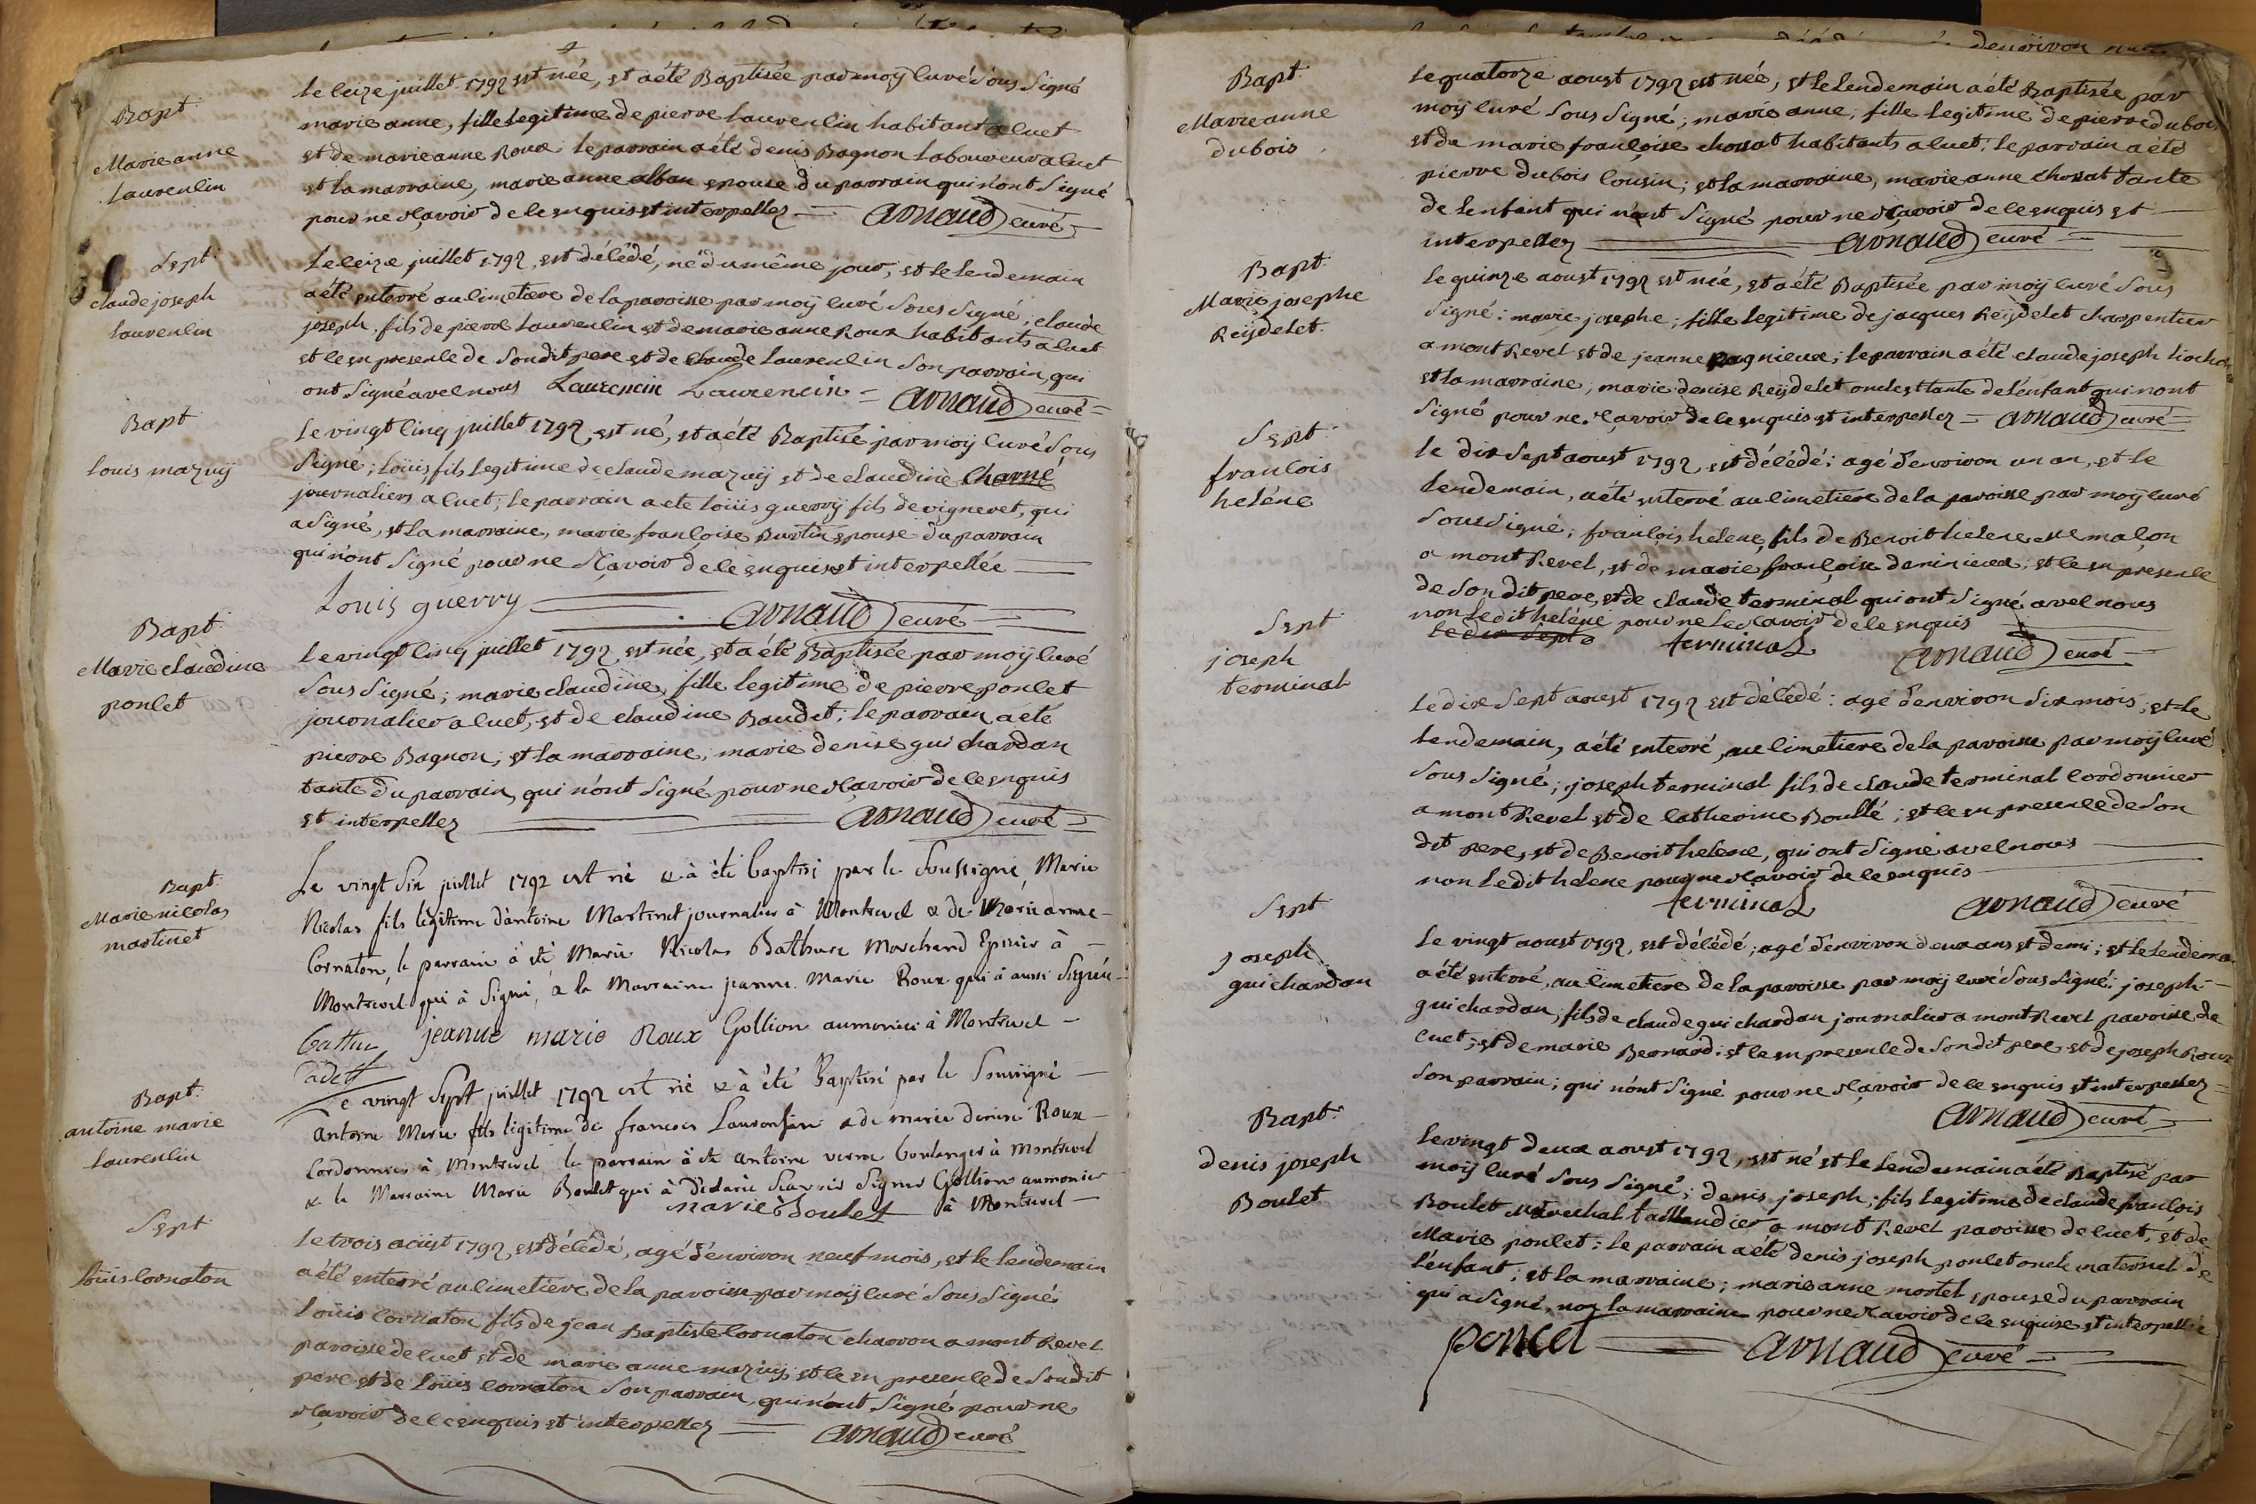 Bapt.
Marie anne
Laurencin
le seize juillet 1792 est née, et a été Baptisée par moÿ curé sous signé
marie anne, fille legitime de pierre Laurencin habitant a cuet
et de marie anne Roux; le parrain a été denis Bagnon Laboureur a cuet
et la marraine, marie anne alban epouse du parrain qui n'ont signé
pour ne sçavoir de ce enquis et interpellez arnaud curé
Sept.
claude joseph
Laurencin
Le seize juillet 1792, est décédé, né du même jour, et le lendemain
a été enterré au cimetiere de la paroisse par moÿ curé sous signé, claude
joseph, fils de pierre Laurencin et de marie anne Roux habitants a cuet
et ce en presence de son dit pere et de claude Laurencin son parrain, qui
ont signé avec nous Laurencin Laurencin arnaud curé
Bapt
Louis mazuÿ
Le vingt cinq juillet 1792, est né, et a été Baptisé par moÿ curé sous
signé; Loüis fils legitime de claude mazuÿ et de claudine Charné
journaliers a cuet; le parrain a eté loüis guerrÿ fils de vigneret, qui
a signé, et la marraine, marie françoise Burtin epouse du parrain
qui n'ont signé pour ne sçavoir de ce enquis et interpellée
Louis guerry arnaud curé
Bapt.
Marie claudine
poncet
Le vingt cinq juillet 1792 est née, et a été Baptisée par moÿ curé
sous signé; marie claudine, fille legitime de pierre poncet
journalier a cuet, et de claudine Baudet; le parrain a été
pierre Bagnon; et la marraine, marie denise guichardan
tante du parrain, qui n'ont signé pour ne sçavoir de ce enquis
et interpellez arnaud curé
Bapt.
Marie nicolas
martinet
Le vingt six juillet 1792 est né & à été baptisé par le soussigné, Marie
Nicolas fils légitime d'antoine Martinet journalier à Montrevel & de Marie anne
Cornaton, le parrain à été Marie Nicolas Bathure Marchand Epicier à
Montrevel qui à signé, & la Marraine jeanne Marie Roux qui à aussi signée
Cattur jeanne marie Roux Gollion aumonier à Montrevel
Cadet
Bapt.
antoine marie
Laurencin
Le vingt sept juillet 1792 est né & à été Baptisé par le soussigné
antoine Marie fils légitime de francois Laurensin & de marie denise Roux
Cordonnier à Montrevel le parrain à été antoine verne boulanger à Montrevel
& la Marraine Marie Boulet qui à déclaré scavoir signer Gollion aumonier
marie Boulet à Montrevel
Sept
Loüis Cornaton
Le trois aoüst 1792, est décédé, agé d'environ neuf mois, et le lendemain
a été enterré au cimetiere de la paroisse par moÿ curé sous signé
Loüis Cornaton fils de jean Baptiste Cornaton charron a mont Revel
paroisse de cuet et de marie anne mazuÿ; et ce en presence de son dit
pere et de Loüis Cornaton son parrain, qui n'ont signé pour ne
sçavoir de ce enquis et interpellez arnaud curé
Bapt.
Marie anne
dubois
Le quatorze aoust 1792 est née, et le lendemain a été Baptisée par
moÿ curé sous signé; marie anne; fille legitime de pierre dubois
et de marie françoise chossat habitants a cuet; le parrain a été
pierre dubois cousin; et la marraine, marie anne chossat tante
de l'enfant qui n'ont signé pour ne sçavoir de ce enquis et
interpellez arnaud curé
Bapt.
Marie josephe
Reÿdelet.
Le quinze aoust 1792 est née, et a été Baptisée par moÿ curé sous
signé; marie josephe; fille legitime de jacques Reÿdelet charpentier
a mont Revel et de jeanne pagnieux; le parrain a été claude joseph
et la marraine, marie denise Reÿdelet oncle et tante de l'enfant qui n'ont
signé pour ne sçavoir de ce enquis et interpellez arnaud curé
Sept.
francois
heléne
le dix sept aoust 1792, est décédé; agé d'environ un an, et le
lendemain, a été enterré au cimetiere de la paroisse par moÿ curé
sous signé; françois helene, fils de Benoit helene maçon
a mont Revel, et de marie françoise ; et ce en presence
de son dit pere, et de claude terminal qui ont signé avec nous
non le dit heléne pour ne le sçavoir de ce enquis
le dix sept a terminal arnaud curé
Sept
joseph
terminal
Le dix sept aoust 1792 est décédé: agé d'environ six mois; et le
lendemain, a été enterré, au cimetiere de la paroisse par moÿ curé
sous signé; joseph terminal fils de claude terminal cordonnier
a mont Revel et de catherine Boullé; et ce en presence de son
dit pere, et de Benoit helene, qui ont signé avec nous
non le dit helene pour ne sçavoir de ce enquis
terminal arnaud curé
Sept
joseph
guichardan
Le vingt aoust 1792, est décédé; agé d'environ deux ans et demi; et le lendemain
a été enterré, au cimetiere de la paroisse par moÿ curé sous signé; joseph
guichardan, fils de claude guichardan journalier a mont Revel paroisse de
cuet; et de marie Bernard; et ce en presence de son dit pere et de joseph Roux
son parrain; qui n'ont signé pour ne sçavoir de ce enquis et interpellez
arnaud curé
Bapt.
denis joseph
Boulet
Le vingt deux aoust 1792, est né et le lendemain a été Baptisé par
moÿ curé sous signé; denis joseph; fils legitime de claude françois
Boulet Marechal taillandier a mont Revel paroisse de cuet, et de
Marie poncet; le parrain a été denis joseph poncet oncle maternel de
l'enfant; et la marraine; marie anne mortel epouse du parrain
qui a signé, non la marraine pour ne sçavoir de ce enquise et interpellée
poncet arnaud curé